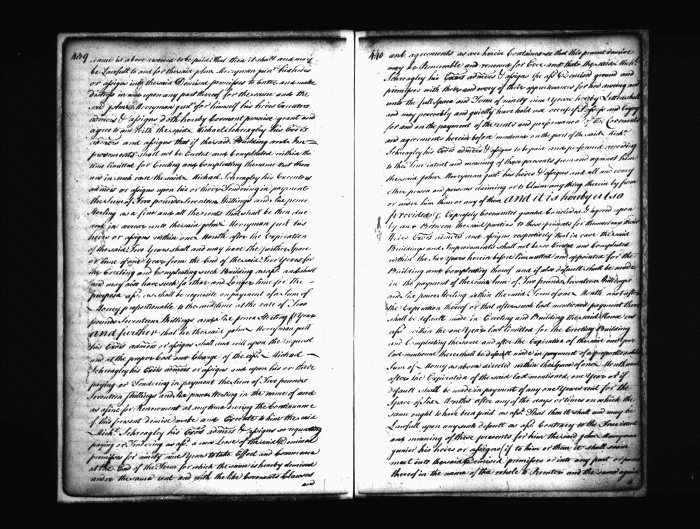 439
same is above reserved to be paid that then it shall and may
be Lawfull to and for the said John Merryman jun.r his heirs
or assigns into the said Demised premises to Enter and make
distress in and upon any part thereof for the same and the
said John Merryman jun.r for himself his heirs Executors
admrs & assigns doth hereby Covenant promise grant and
agree to and with the said Michael Schreagley his Exōrs
admōrs and assigns that if the said Building and
shall not be Erected and Compleated within the
time limited for Erecting and Compleating thereof that then
and in such case the said Michael Schreagley his Executors
admōrs or assigns upon his or their Tendring in payment
the Sum of Two pounds Seventeen Shillings and Six pence
Sterling as a fine and all the rents that shall be then due
and in arrear unto the said John Merryman jun.r his
heirs or assigns within one Month after the Expiration
of the said Two Years shall and may have the further Space
or time of one Year from the End of the said Two Years for
the Erecting and Compleating such Building and shall
and may also have such further and Longer time for the
purpose as shall be requisite in payment of a Sum of
Money proportionable to the said time at the rate of Two
pounds Seventeen Shillings and Six pence Sterling Year
and further that he the said John Merryman jun.r
his Exōrs admōrs or assigns shall and will upon the request
and at the proper Cost and Charge of the Michael
Schreagley his Exōrs admōrs or assigns and upon his or their
paying or Tendering in payment the Sum of Two pounds
Seventeen Shillings and Six pence Sterling in the name of and
as a fine for Renewment at any time during the Continuance
of this present demise make and Execute to him the said
Mich.l Schreagley his Exōrs admōrs & assigns so requesting
paying or Tendering as a new Lease of the said Demised
premises for ninety nine Years to take Effect and Commence
at the End of the Term for which the same is hereby demised
under the same rent and with the like Covenants Clauses
and
440
and agreements as are herein Contained so that this present demise
may be Renewable and renewed for Ever and that the said Mich.l
Schreagley his Exōrs admōrs & assigns the Demised ground and
premises with their and every of their appurtenances for and during and
unto the full Space and Term of ninety nine Years hereby Letten
and may peaceably and quietly have hold use occupy possess and Enjoy
for and on the payment of the rents and performance of the Covenants
and agreements herein before mentioned on the part of the said Mich.l
Schreagley his Exōrs admōrs & assigns to be paid and performed according
to the true intent and meaning of these presents from and against him
the said John Merryman jun.r his heirs & assigns and all and every
other person and persons claiming or to Claim any thing therein by from
or under him them or any of them and it is hereby also
provided & Expressly Covenanted granted Concluded & agreed upon
by and Between the said parties to these presents for themselves their
heirs Exōrs admōrs and assigns respectively that in case the said
Buildings and Improvements shall not be so Erected and Compleated
within the Two Years herein before Limmitted and appointed for the
Building and Compleating thereof and if also default shall be made
in the payment of the said Sum of Two pounds Seventeen Shillings
and Six pence Sterling within the said Term of one Month next after
the Expiration thereof or that after such last mentioned payment there
shall be default made in Erecting and Building the said House
within the one Year last limitted for the Erecting Building
and Compleating the same and after the Expiration of the said one Year
last mentioned there shall be default made in payment of a proportionable
Sum of Money as above directed within the Space of one Month next
after the Expiration of the said last mentioned one Year or if
default shall be made in payment of any one Years rent for the
Space of Six Months after any of the days or times on which the
same ought to have been paid as Then that it shall and may be
Lawfull upon any such default as Contrary to the True intent
and meaning of these presents for him the said John Merryman
junior his heirs or assigns if to him or them it shall seem
meet into the said Demised premises or into any part or parcel
thereof in the name of the whole to Reenter and the same again